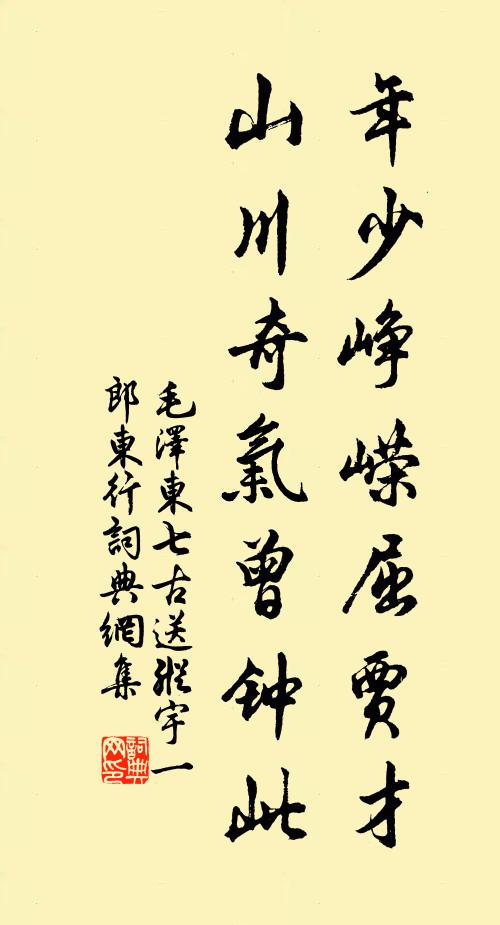 年少峥嵘屈賈才
山川奇氣曾钟此
毛澤東七古送縱宇一
郎東行詞典網集
詞典
网印